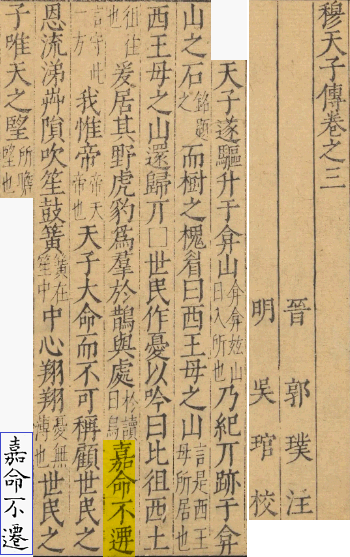 穆天子傳卷之三
晉 郭璞 汪
明 吳琯 校
天子遂驅升于弇山弇弇玆山日入所也乃紀丌跡于弇
山之石銘題之而樹之槐眉曰西王母之山言是西王母所居也
西王母之山還歸丌□世民作憂以吟曰比徂西土
徂往也爰居其野虎豹爲羣於鵲與處於讀曰烏嘉命不遷
言守此一方我惟帝帝天帝也天子大命而不可稱顧世民之
恩流涕芔隕吹笙鼓簧簧在笙中中心翔翔憂無薄也世民之
子唯天之朢所瞻朢也
嘉命不遷